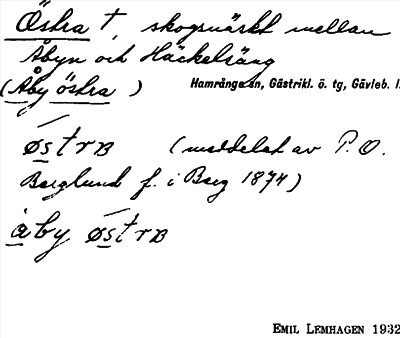 Östra †, skogsmärkt mellan
Åbyn och Häckelsäng
(Åby östra )
Hamrånge sn, Gästrikl. ö. tg, Gävleb. l.
østrʙ (meddelat av P. O.
Berglund f. i Berg 1874)
åby østrʙ
EMIL LEMHAGEN 1932